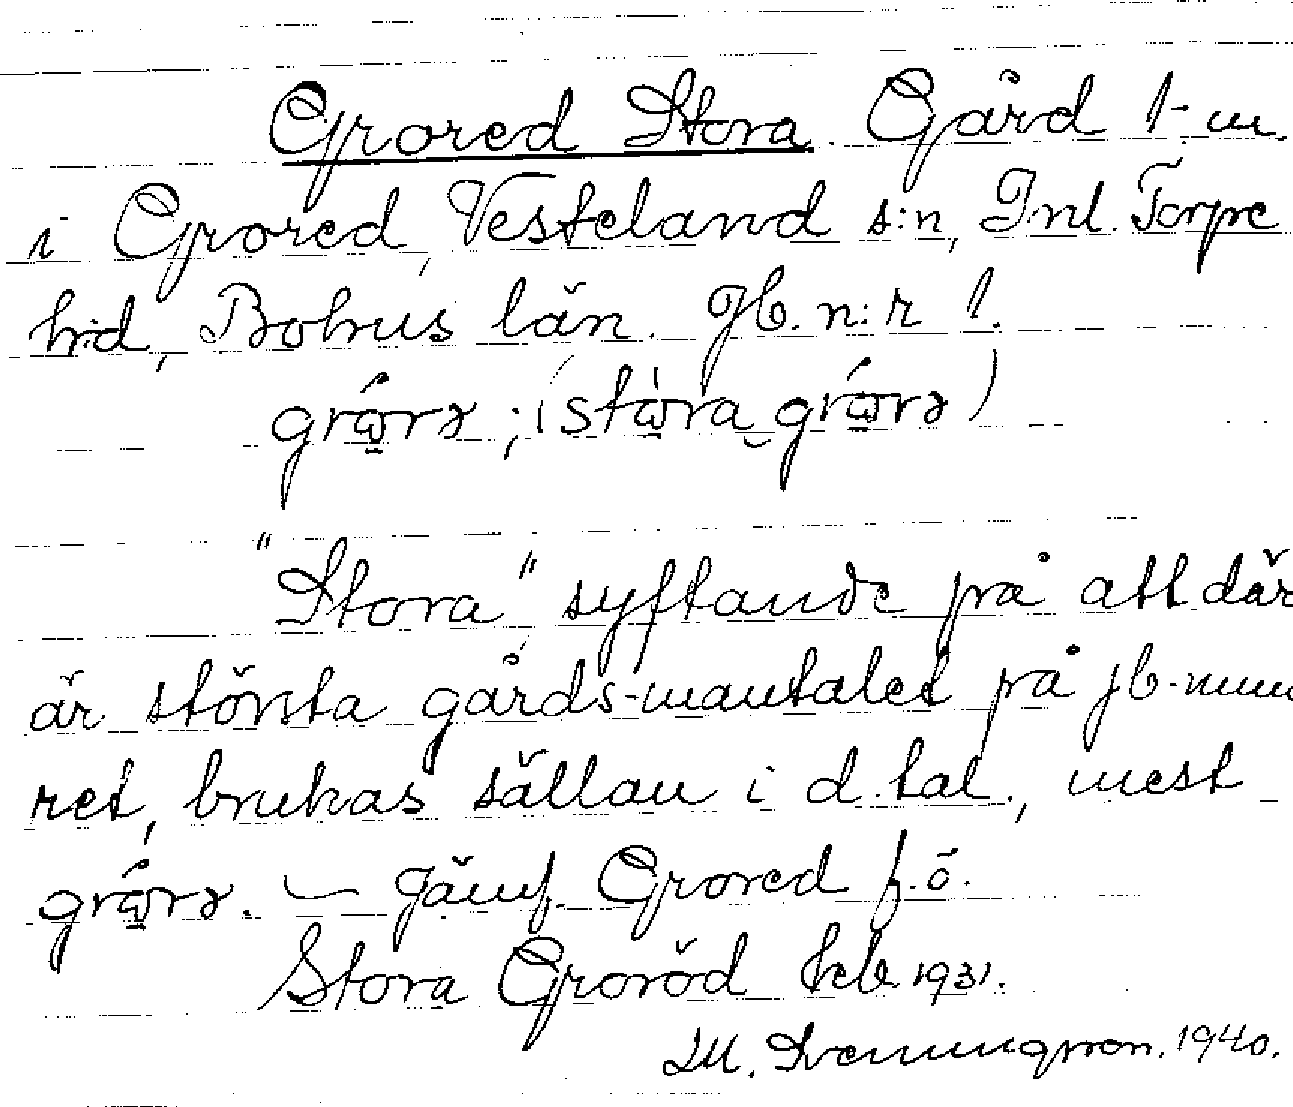 Grored Stora. Gård 1 m.
i Grored, Vesteland s:n, Inl. Torpe
hd, Bohus län. Jb. n:r 1.
"Stora", syftande på att där
är största gårds-mantalet på jb-num
ret, brukas sällan i d. tal., mest
Jämf. Grored f.ö.
Stora Groröd 1931.
1940.